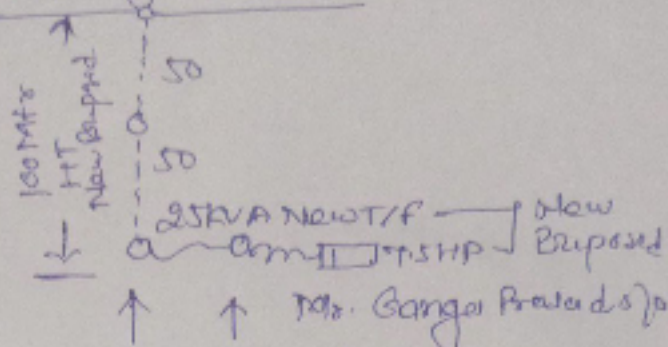 100 Mtr
HT
New Proposed
50
50
25KVA New T/f
New
Proposed
7.5HP
Mr. Ganga Prasad s/o